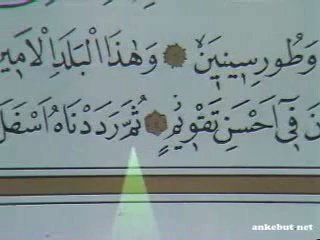 وَطُورِ سِينِينَۙ وَهٰذَا الْبَلَدِ الْاَمِينِ
فِٓي اَحْسَنِ تَقْوِيمٍۘ ثُمَّ رَدَدْنَاهُ اَسْفَلَ
ankebut.net